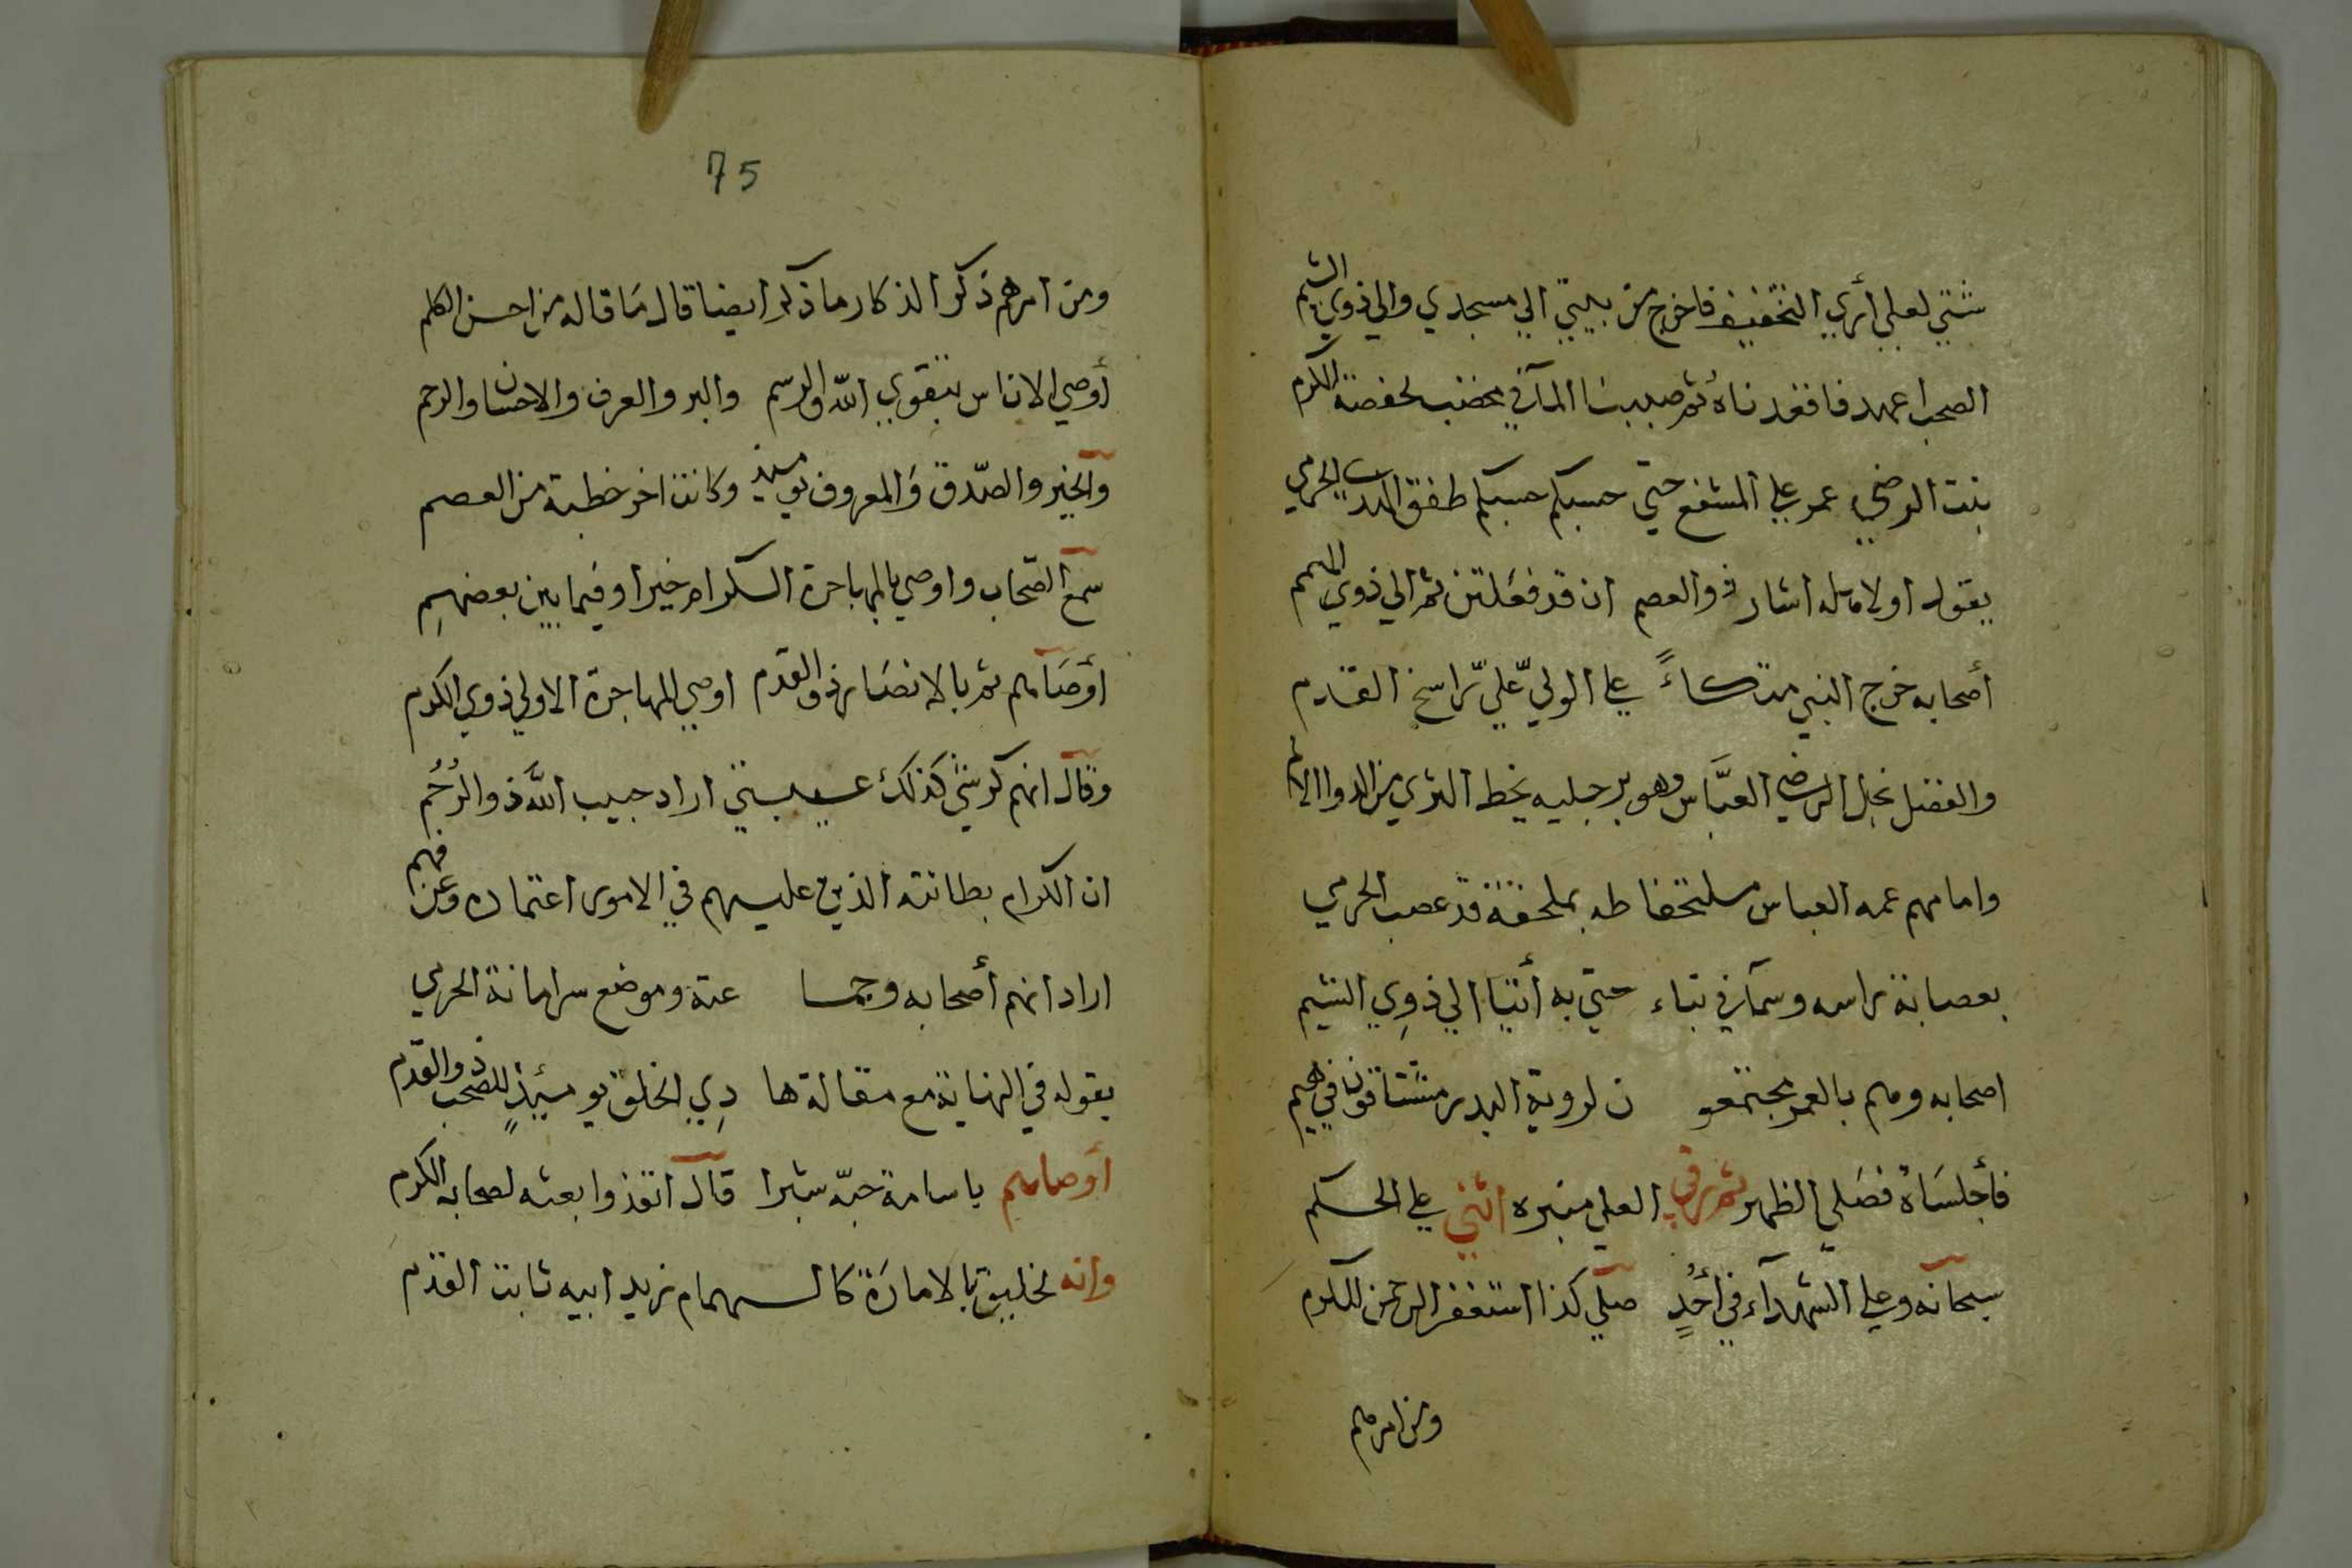 شتي لعلي أري التخفيف فاخرج من بيتي الي مسجدي والي ذوي الشيم
الصحب اعهد فاقعدناه ثم صببنا المآ في مخضب لحفصة الكرم
بنت الرضي عمر علي المشفع حتي حسبكم حسبكم طفق الحرمي
يقوله اولا مله اشار ذو العصم ان قد فعلتن ثم الي ذوي الهمم
أصحابه خرج النبي متكاءً علي الولي علي راسخ القدم
والفضل نجل الرضي العباس وهو برجليه يخط الثري من الدوا الالم
وامامهم عمه العباس ملتحفا طه بملحفة قد عصب الحرمي
بعصابة راسه وسمآ في بناء حتي به أتيا الي ذوي الشيم
اصحابه وهم بالعمر مجتمعو ن لروية البدر مشتاقون في هيم
فأجلساه فصلي الظهر ثم رقي العلي منبره اثني علي الحكم
سبحانه وعلي الشهدآء في أحد صلي كذا استغفر الرحمن للكرم
ومن امرهم
75
ومن امرهم ذكر الذكار ما ذكر ايضا قال ما قاله من احسن الكلم
أوصي الاناس بتقوي الله والرسم والبر والعرف والاحسان والرحم
والخير والصدق والمعروف يوميذ وكانت اخر خطبة من العصم
سمع الصحاب واوصي بالمهاجرة الكرام خيرا وفيما بين بعضهم
أوصاهم ثم بالانصار ذو القدم اوصي المهاجرة الاولي ذوي الكرم
وقال انهم كرشي كذلك عيبتي اراد حبيب الله ذو الرحم
ان الكرام بطانته الذين عليهم في الامور اعتماده وعن فهم
اراد انهم أصحابه وجما عته وموضع سر امانة الحرمي
يقوله في النهاية مع مقالة ها دي الخلق يوميذ للصحب ذو القدم
أوصاهم باسامة حبه بشرا قال انفذوا بعثه لصحابه الكرم
وانه لخليق بالامارة كا لهمام زيد ابيه ثابت القدم